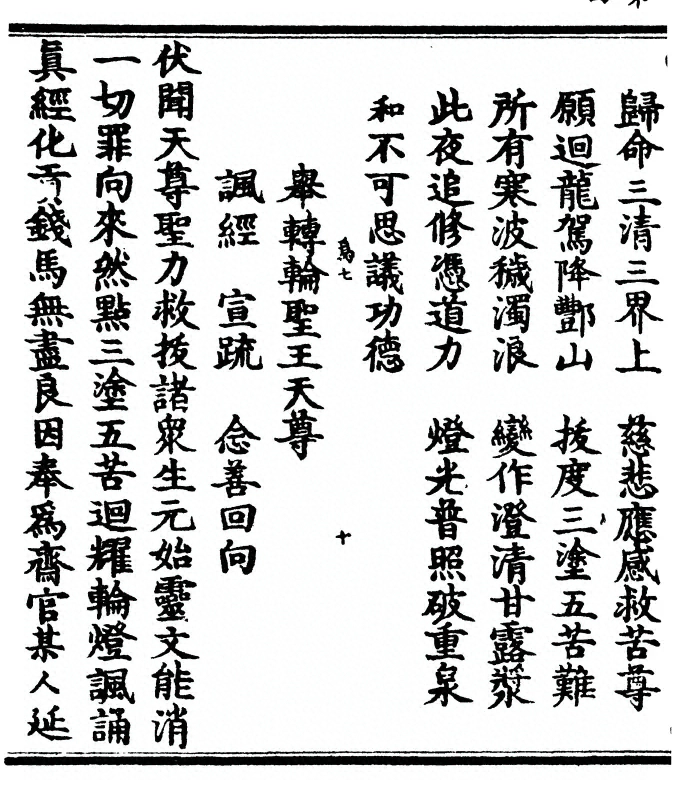 歸命三清三界上　慈悲應感救苦尊
願迴龍駕降酆山　拔度三塗五苦難
所有寒波穢濁浪　變作澄清甘露漿
此夜追修憑道力　燈光普照破重泉
和不可思議功德
爲七　十
舉轉輪聖王天尊
諷經　宣疏　念善回向
伏聞天尊聖力救拔諸眾生元始靈文能消
一切罪向來然點三塗五苦迴耀輪燈諷誦
眞經化錢馬無盡良因奉爲齋官某人延